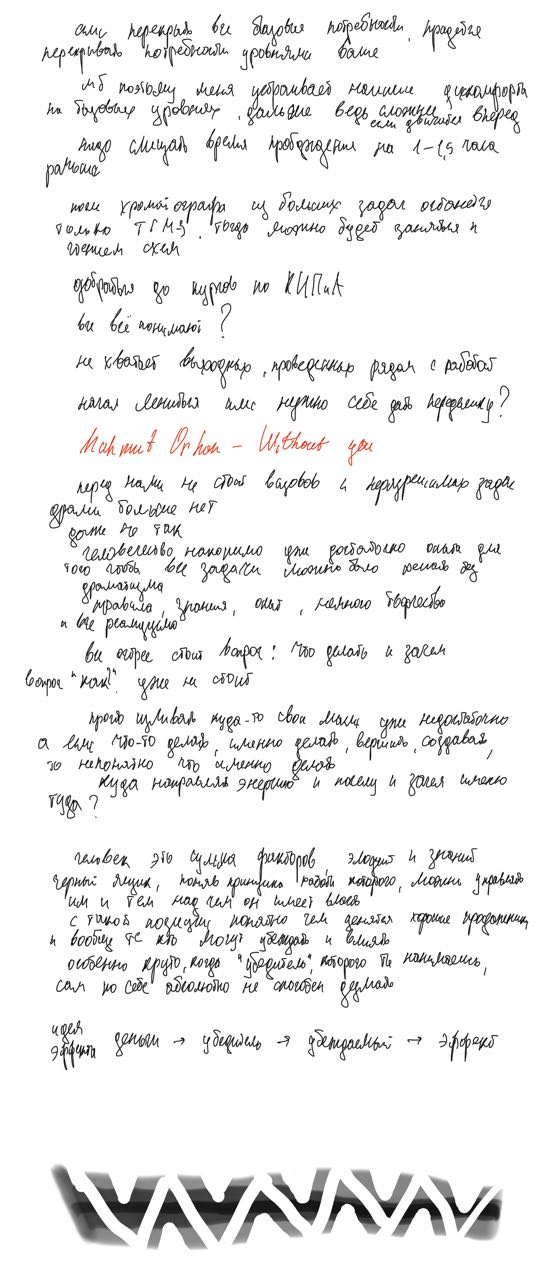 если перекрыть все базовые потребности, придется
перекрывать потребности уровнями выше
мб поэтому меня устраивает наличие дискомфорта
на базовых уровнях, дальше ведь сложнее
если двигаться вперед
надо смещать время пробуждения на 1-1,5 часа
раньше
после хроматографа из больших задач останется
только ТГМЗ, тогда можно будет заняться и
чтением схем
добраться до курсов по КИПиА
вы всё понимаю?
не хватает выходных, проведенных рядом с работой
начал лениться или нужно себе дать передышку?
Mahmut Orhan - Without you
перед нами не стоит вызовов и неразрешимых задач
драмы больше нет
даже не так
человечество накопило уже достаточно опыта для
того чтобы все задачи можно было решать без
драматизма
правила, знания, опыт, немного творчества
и все реализуемо
все острее стоит вопрос: что делать и зачем
вопрос "как?" уже не стоит
просто изливать куда-то свои мысли уже недостаточно
а если что-то делать, именно делать, вершить, создавать,
то непонятно что именно делать
куда направлять энергию и почему и зачем именно
туда?
человек это сумма факторов, эмоций и знаний
черный ящик, поняв принципы работы которого, можно управлять
им и тем над чем он имеет власть
с такой позиции понятно чем ценятся хорошие продажники
и вообще те кто могут убеждать и влиять
особенно круто, когда "убедитель", которого ты нанимаешь,
сам по себе абсолютно не способен думать
идея
эффекта деньги → убедитель → убеждаемый → эффект